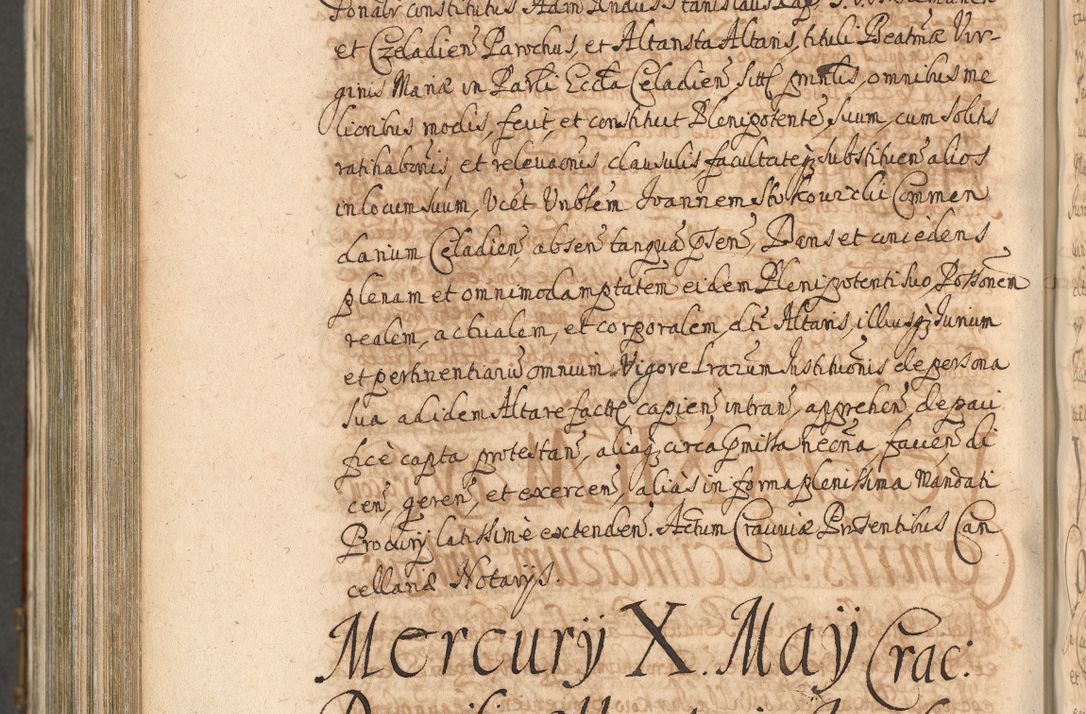 sonalr constitutus Adm Rndus Stanislaus
et Czeladień Parochus, et Altarista Altaris, tituli Beatmæ Vir-
ginis Mariæ in Parli Eccła Celadień sitt, omnibus me
lioribus modis, fecit, et constituit Plenipotente suum, cum solitis
ratihabonis, et relevaonis clausulis facultateq substituen alios
in locum suum, Vcet Vnblem Joannem Commen
darium Celadień, absen tanquā psen, Dans et concedens
plenam et omnimodam ptatem eidem Plenipotenti suo, Possonem
realem, actualem, et corporalem, dti Altaris, illiusq Jurium
et pertinentiarū omnium. Vigore Lrarum Institutionis de persona
sua ad idem Altare factæ capien, intran, apprehen, de paci
ficè capta protestan, aliaq circa pmissa necña, facien, di
cen, geren, et exercen, aliàs in forma plenissima Mandati
Procury latissimè extenden. Actum Cracoviæ Prsentibus Can
cellariæ Notarijs.
Mercurÿ X. Maÿ Crac: